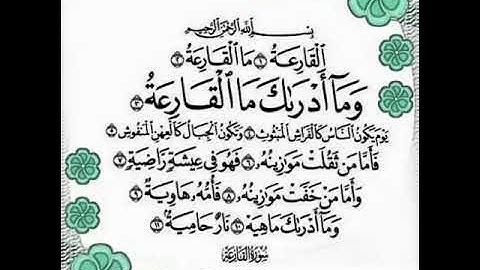 بِسْمِ ٱللَّهِ ٱلرَّحْمَٰنِ ٱلرَّحِيمِ
ٱلْقَارِعَةُ ١ مَا ٱلْقَارِعَةُ ٢
وَمَآ أَدْرَىٰكَ مَا ٱلْقَارِعَةُ ٣
يَوْمَ يَكُونُ ٱلنَّاسُ كَٱلْفَرَاشِ ٱلْمَبْثُوثِ ٤ وَتَكُونُ ٱلْجِبَالُ كَٱلْعِهْنِ ٱلْمَنفُوشِ ٥
فَأَمَّا مَن ثَقُلَتْ مَوَٰزِينُهُۥ ٦ فَهُوَ فِى عِيشَةٍ رَّاضِيَةٍ ٧
وَأَمَّا مَنْ خَفَّتْ مَوَٰزِينُهُۥ ٨ فَأُمُّهُۥ هَاوِيَةٌ ٩
وَمَآ أَدْرَىٰكَ مَا هِيَهْ ١٠ نَارٌ حَامِيَةٌۢ ١١
سُورَةُ ٱلْقَارِعَة